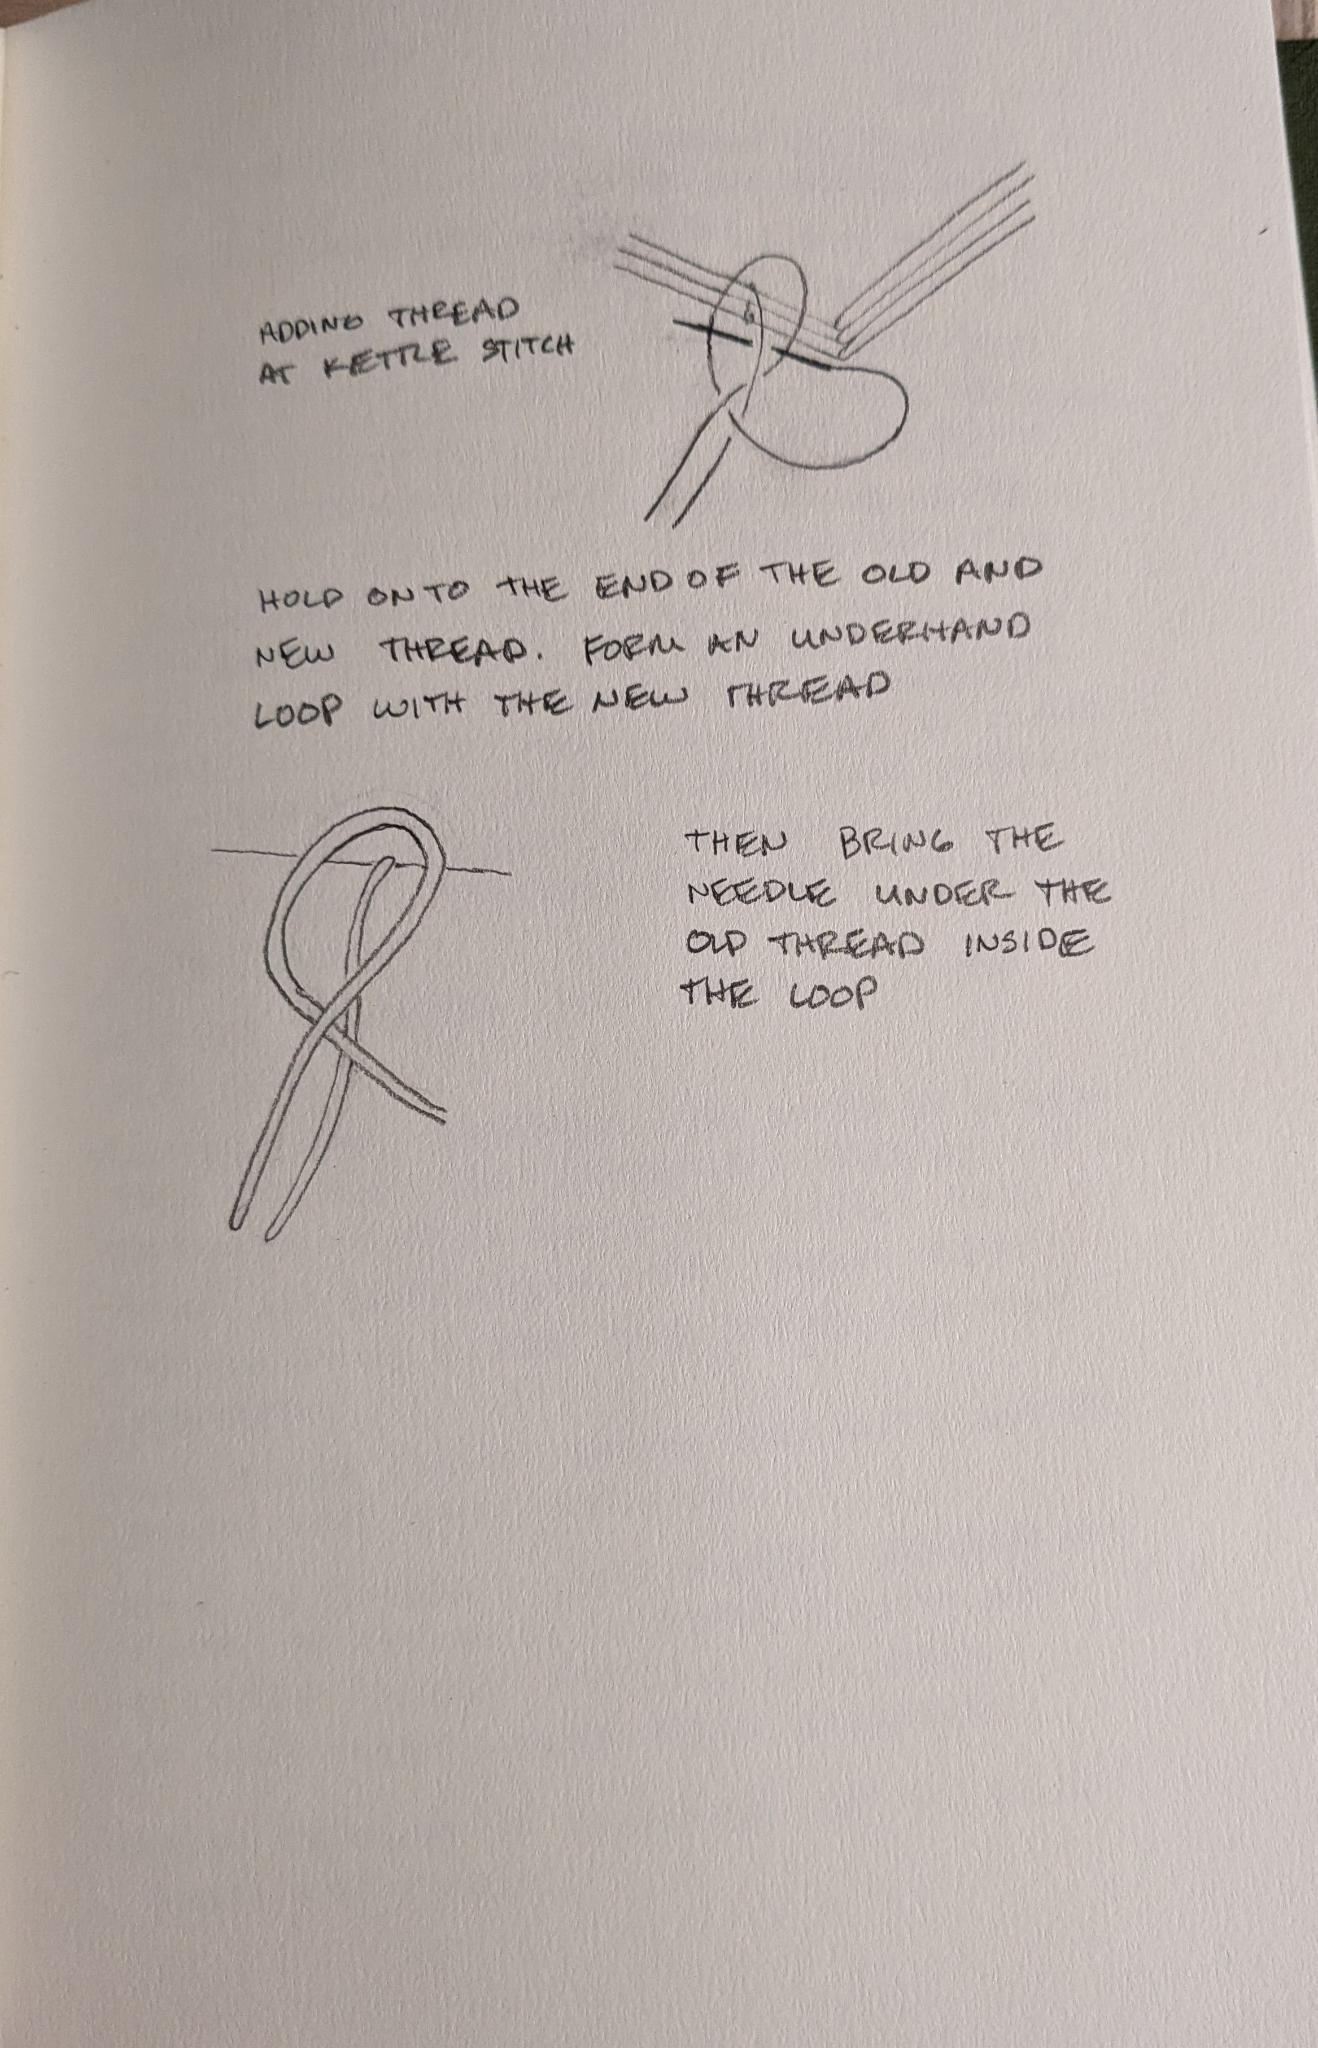 ADDING THREAD
AT KETTLE STITCH
HOLD ONTO THE END OF THE OLD AND
NEW THREAD. FORM AN UNDERHAND
LOOP WITH THE NEW THREAD
THEN BRING THE
NEEDLE UNDER THE
OLD THREAD INSIDE
THE LOOP